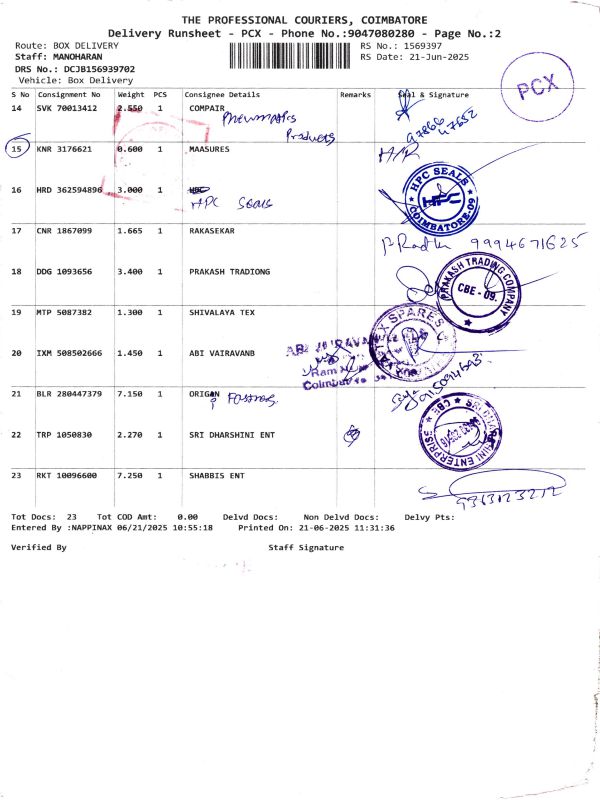 THE PROFESSIONAL COURIERS, COIMBATORE
Delivery Runsheet - PCX - Phone No.:9047080280 - Page No.:2
Route: BOX DELIVERY RS No.: 1569397
Staff: MANOHARAN RS Date: 21-Jun-2025
DRS No.: DCJB156939702
Vehicle: Box Delivery
PCX
S No Consignment No Weight PCS Consignee Details Remarks Seal & Signature
14 SVK 70013412 2.550 1 COMPAIR
Pneumatics
Products
97866
47652
15 KNR 3176621 0.600 1 MAASURES
16 HRD 362594896 3.000 1 HPC
HPC Seals
HPC SEALS
HPC
COIMBATORE-09
17 CNR 1867099 1.665 1 RAKASEKAR
P Radha 9994671625
18 DDG 1093656 3.400 1 PRAKASH TRADIONG
PRAKASH TRADING COMPANY
CBE - 09.
19 MTP 5087382 1.300 1 SHIVALAYA TEX
20 IXM 508502666 1.450 1 ABI VAIRAVANB
TEX SPARES
Ram
Coimbatore
21 BLR 280447379 7.150 1 ORIGAN
22 TRP 1050830 2.270 1 SRI DHARSHINI ENT
SRI DHARSHINI ENTERPRISE
CBE
23 RKT 10096600 7.250 1 SHABBIS ENT
9363123212
Tot Docs: 23 Tot COD Amt: 0.00 Delvd Docs: Non Delvd Docs: Delvy Pts:
Entered By :NAPPINAX 06/21/2025 10:55:18 Printed On: 21-06-2025 11:31:36
Verified By Staff Signature